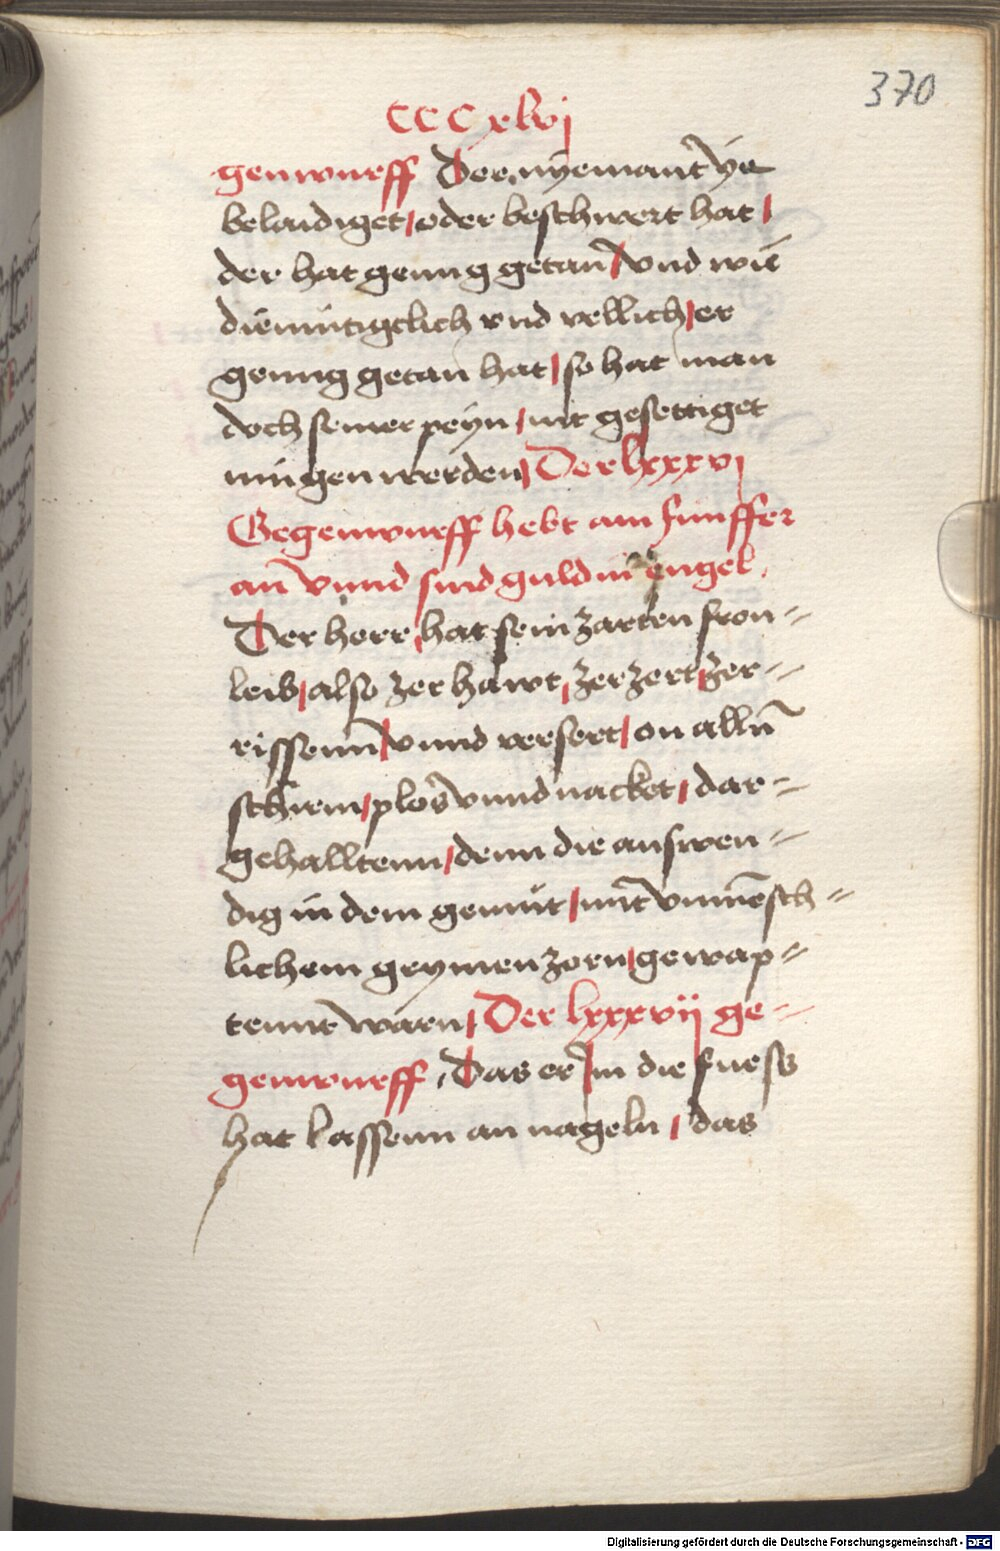 370
CCCxlvj
genwurff Der nyemant ye
belaidiget / oder beschwert hat /
der hat genug getan / vnd wie
diemutigclich vnd vellich / er
genug getan hat / so hat man
doch seiner peyn / nit gesettiget
mugen werden / Der lxxxvj
Gegenwurff hebt am funffer
an vnnd sind guldin engel
Der herr / hat sein zarten fron=
leib / also zerhawt / zerzert / zer=
rissenn / vnnd versert / on alln
schirm / plos vnnd nacket / dar=
gehalltenn / denn die auswen=
dig in dem gemut / mit vnmensch=
lichem grymen zorn / gewap=
tennt warn / Der lxxxvij ge=
genwurff / Das er Im die fuess
hat lassenn an nageln / das
Digitalisierung gefördert durch die Deutsche Forschungsgemeinschaft - DFG